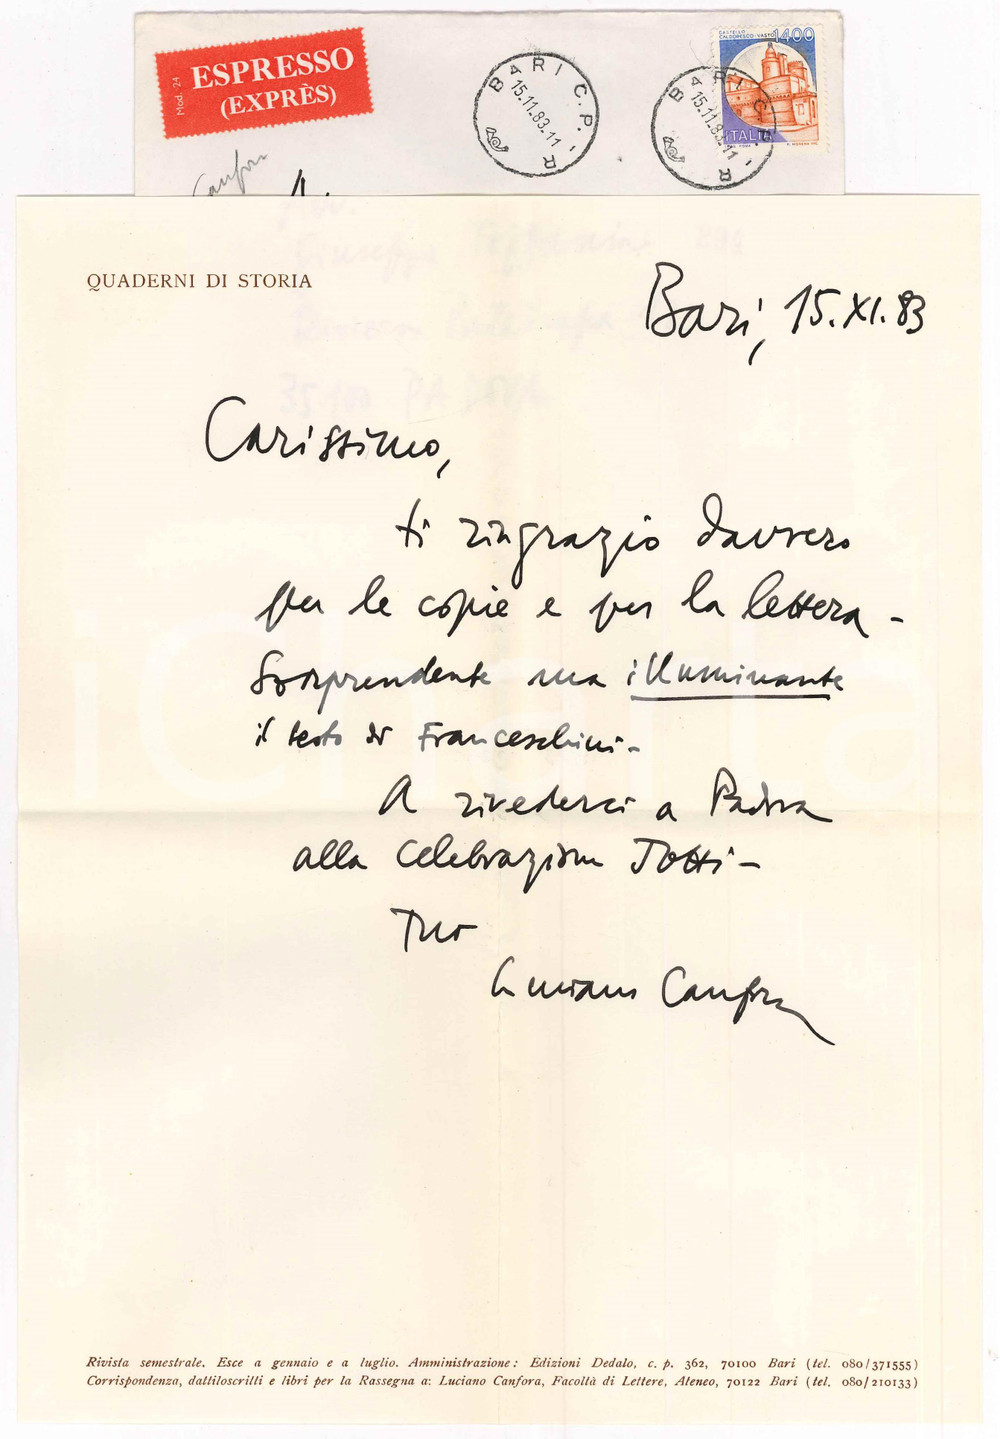 Mod. 24
ESPRESSO
(EXPRÈS)
BARI C.P.
15.11.83.11
BARI C.P.
15.11.83.11
CASTELLO
CALDORESCO-VASTO
1400
ITALIA
Canfora
QUADERNI DI STORIA
Bari, 15.XI.83
35100 PADOVA
Carissimo,
ti ringrazio davvero
per le copie e per la lettera -
Sorprendente ma illuminante
il testo di Franceschini -
A rivederci a Padova
alla celebrazione Totti -
Tuo
Luciano Canfora
Rivista semestrale. Esce a gennaio e a luglio. Amministrazione: Edizioni Dedalo, c. p. 362, 70100 Bari (tel. 080/371555)
Corrispondenza, dattiloscritti e libri per la Rassegna a: Luciano Canfora, Facoltà di Lettere, Ateneo, 70122 Bari (tel. 080/210133)